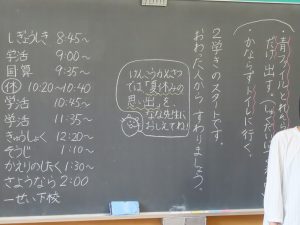 ・青ファイル、れん
だけ出す。(しゅくだい
・かならずトイレに行く。
2学きのスタートです。
おわった人から すわりましょう。
けんこうかんさつ
では「夏休みの
思い出」を、
先生に
おしえてね!
しぎょうしき 8:45〜
学活 9:00〜
国算 9:35〜
休 10:20〜10:40
学活 10:45〜
学活 11:35〜
きゅうしょく 12:20〜
そうじ 1:10〜
かえりのしたく 1:30〜
さようなら 2:00
一せい下校